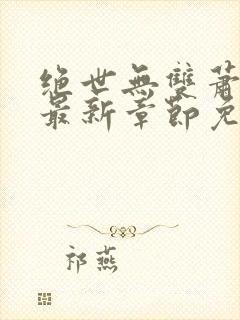 絕世無雙蕭
最新章節免
祁燕